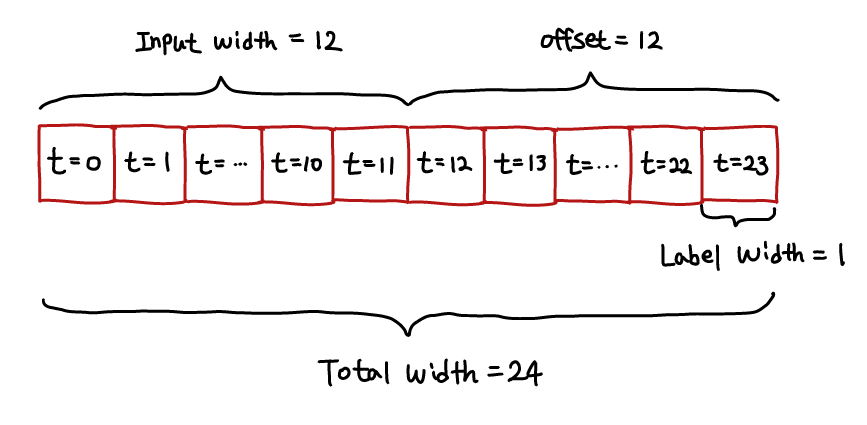 Input width = 12
offset = 12
t=0 t=1 t=... t=10 t=11 t=12 t=13 t=... t=22 t=23
Label width = 1
Total width = 24